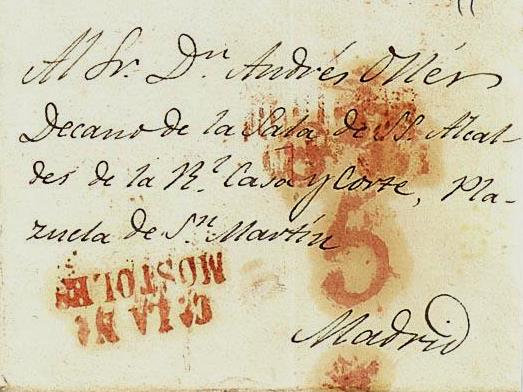 Al Sr. Dn Andrés Ollér
Decano de la Sala de SS. Alcal-
des de la Rl. Casa y Corte, Pla-
zuela de Sn Martín
Madrid
5
MOSTOLES
LA N